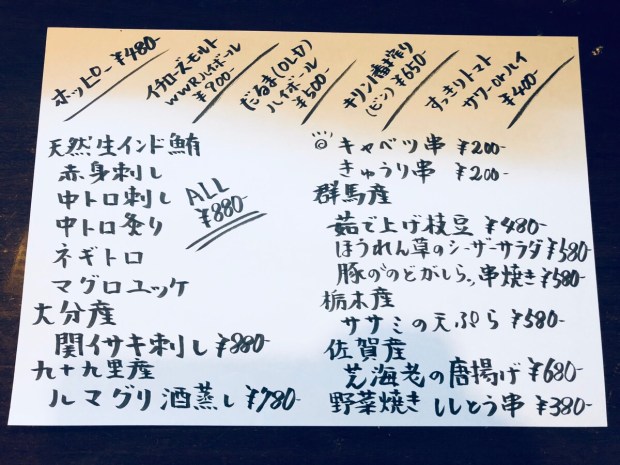 ホッピー ¥480-
イチローズモルト
WWRハイボール
¥900-
だるま(OLD)
ハイボール
¥500-
キリン一番搾り
(ビン) ¥650-
すっきりトマト
サワーorハイ
¥400-
天然生インド鮪
赤身刺し
中トロ刺し
中トロ炙り
ネギトロ
マグロユッケ
ALL
¥880-
大分産
関イサキ刺し ¥880-
九十九里産
ハマグリ酒蒸し ¥780-
◎ キャベツ串 ¥200-
きゅうり串 ¥200-
群馬産
茹で上げ枝豆 ¥480-
ほうれん草のシーザーサラダ ¥580-
豚の"のどがしら"串焼き ¥580-
栃木産
ササミの天ぷら ¥580-
佐賀産
芝海老の唐揚げ ¥680-
野菜焼き ししとう串 ¥380-